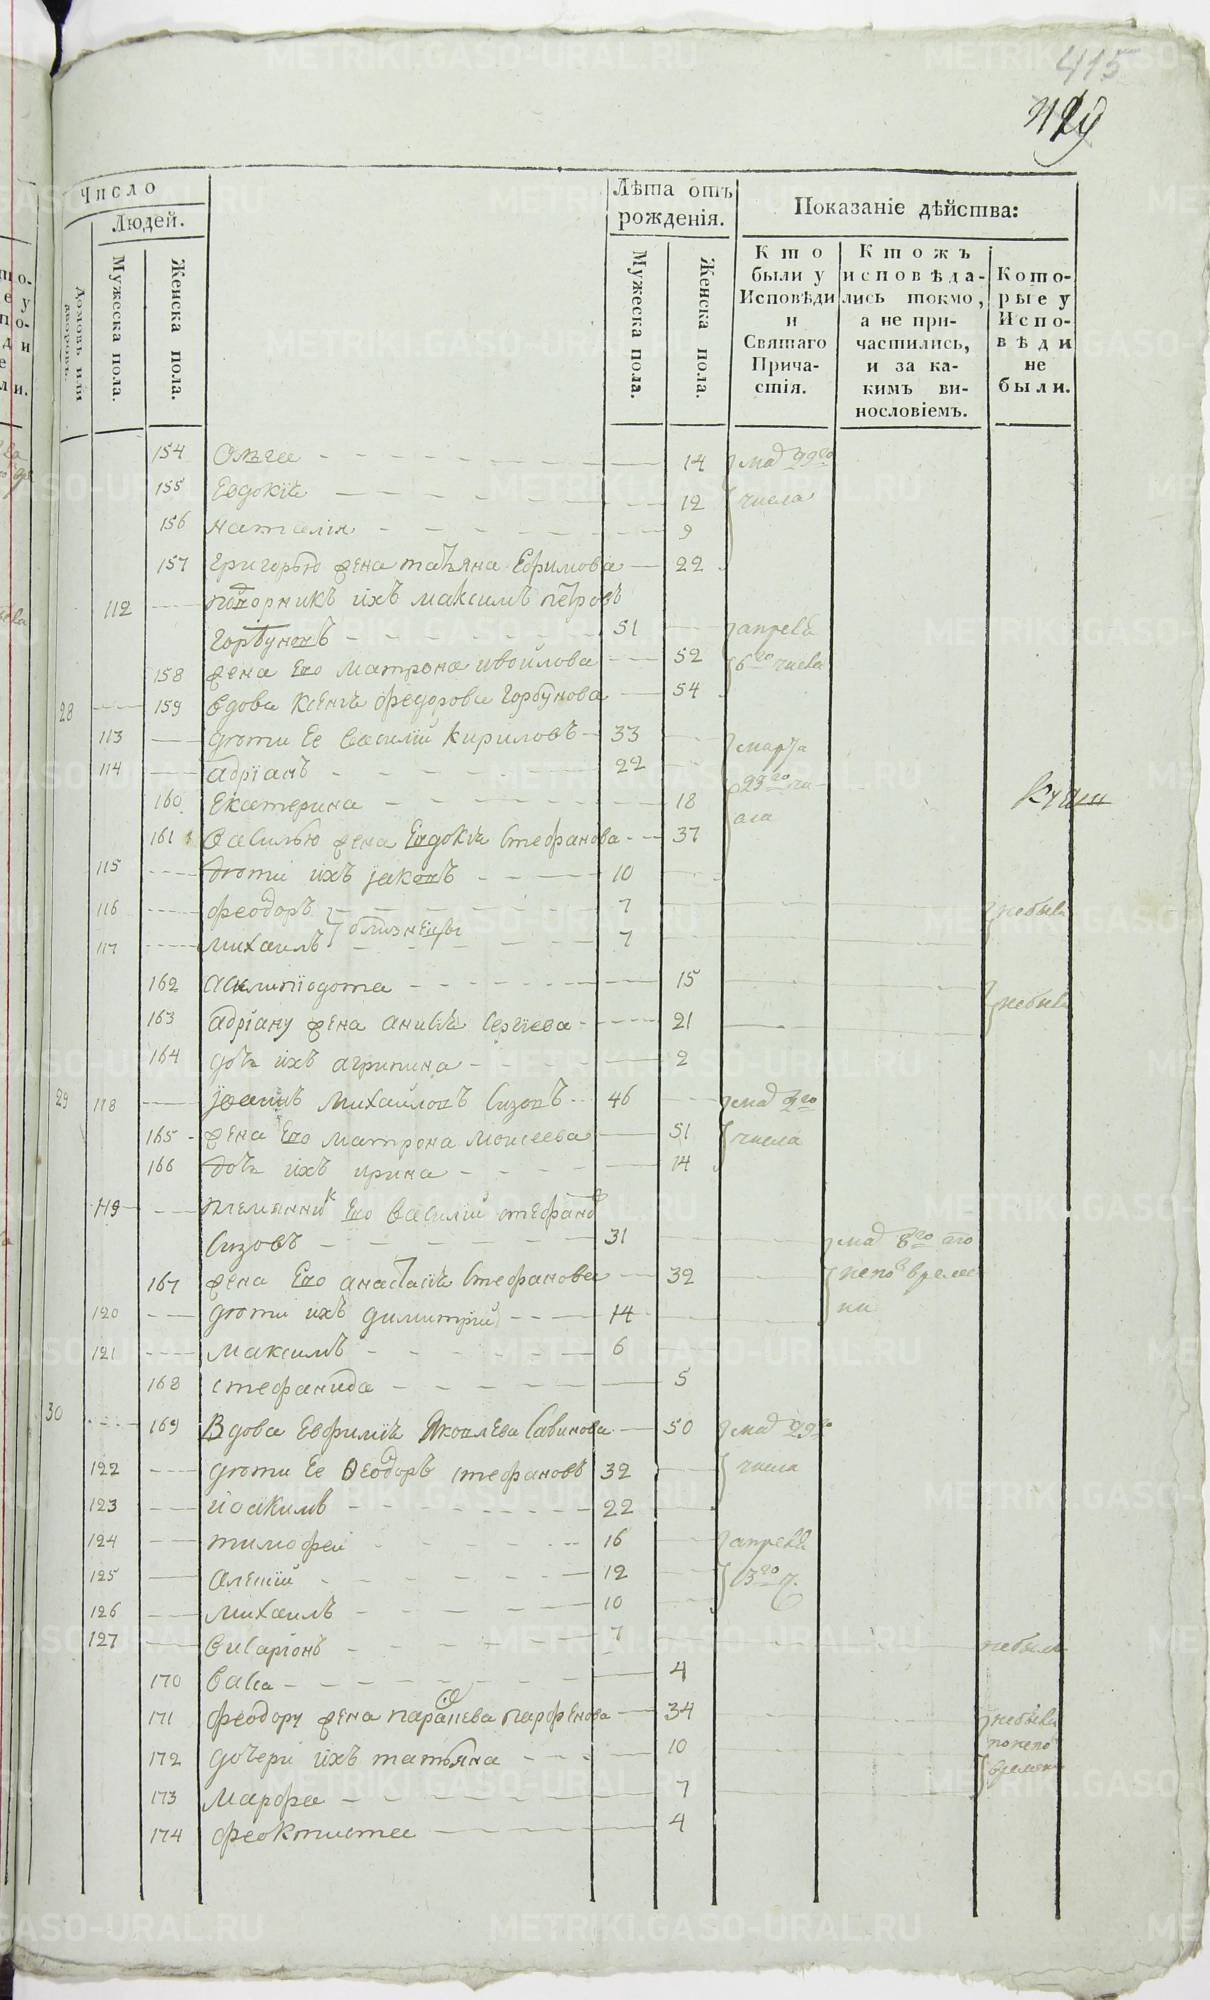 415
Число
Людей.
Домовъ или дворовъ.
Мужеска пола.
Женска пола.
Лѣта отъ рожденія.
Мужеска пола.
Женска пола.
Показаніе дѣйства:
Кто были у Исповѣди и Святаго Причастія.
Ктожъ исповѣдались токмо, а не причастились, и за какимъ винословіемъ.
Которые у Исповѣди не были.
154 Олга 14 маа 29го
155 Евдокіѣ 12 числа
156 наталія 9
157 григорью жена татьяна Ефимова 22
112 подворникъ ихъ максимъ петровъ
горбуновъ 51 апреля
158 жена Его матрона ивойлова 52 6го числа
28 159 вдова Ксенѣ федорова горбунова 54
113 дѣти Ее василій кириловъ 33 марта
114 адріанъ 22 23го чи-
160 Екатерина 18 сла
161 василью жена Евдокіѣ стефанова 37
115 дѣти ихъ іаковъ 10
116 феодоръ 7 небыли
близнецы
117 михаилъ 7
162 15
163 адріану жена анисіѣ сергіева 21 небыли
164 дочь ихъ агрипина 2
29 118 іоаннъ михайловъ сизовъ 46 маа
165 жена Его матрона моисеева 51 числа
166 дочь ихъ ирина 14
119 племянникъ Его василий стефановъ
сизовъ 31 маа 8го
167 жена Его анастасіѣ стефанова 32
120 дѣти ихъ димитрій 14
121 максимъ 6
168 стефанида 5
30 169 Вдова Евфиміѣ Яковлева Савинова 50 маа 29го
122 дѣти Ее Ѳеодоръ стефановъ 32 числа
123 іоакимъ 22
124 тимофей 16 апреля
125 алексій 12 13го ч.
126 михаилъ 10
127 виларіонъ 7 небыли
170 васа 4
171 феодору жена параскева парфенова 34 небыли
172 дочери ихъ татьяна 10
173 марфа 7 времени
174 феоктиста 4
METRIKI.GASO-URAL.RU